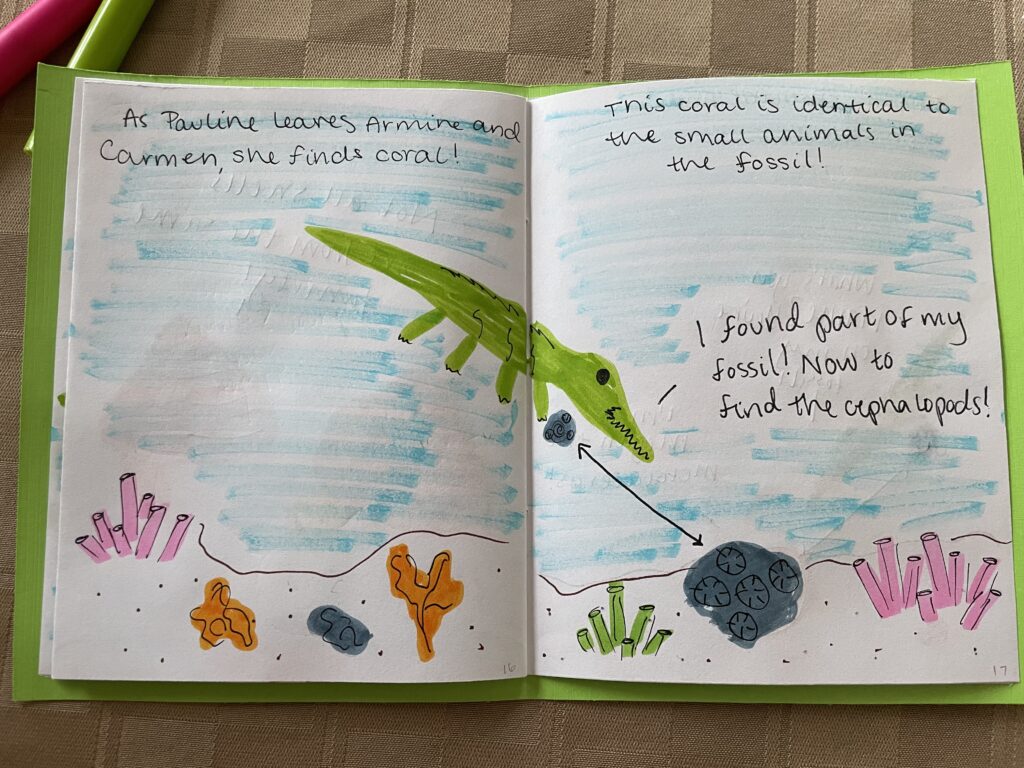 As Pauline leaves Armine and
Carmen, she finds coral!
16
This coral is identical to
the small animals in
the fossil!
I found part of my
fossil! Now to
find the cephalopods!
17